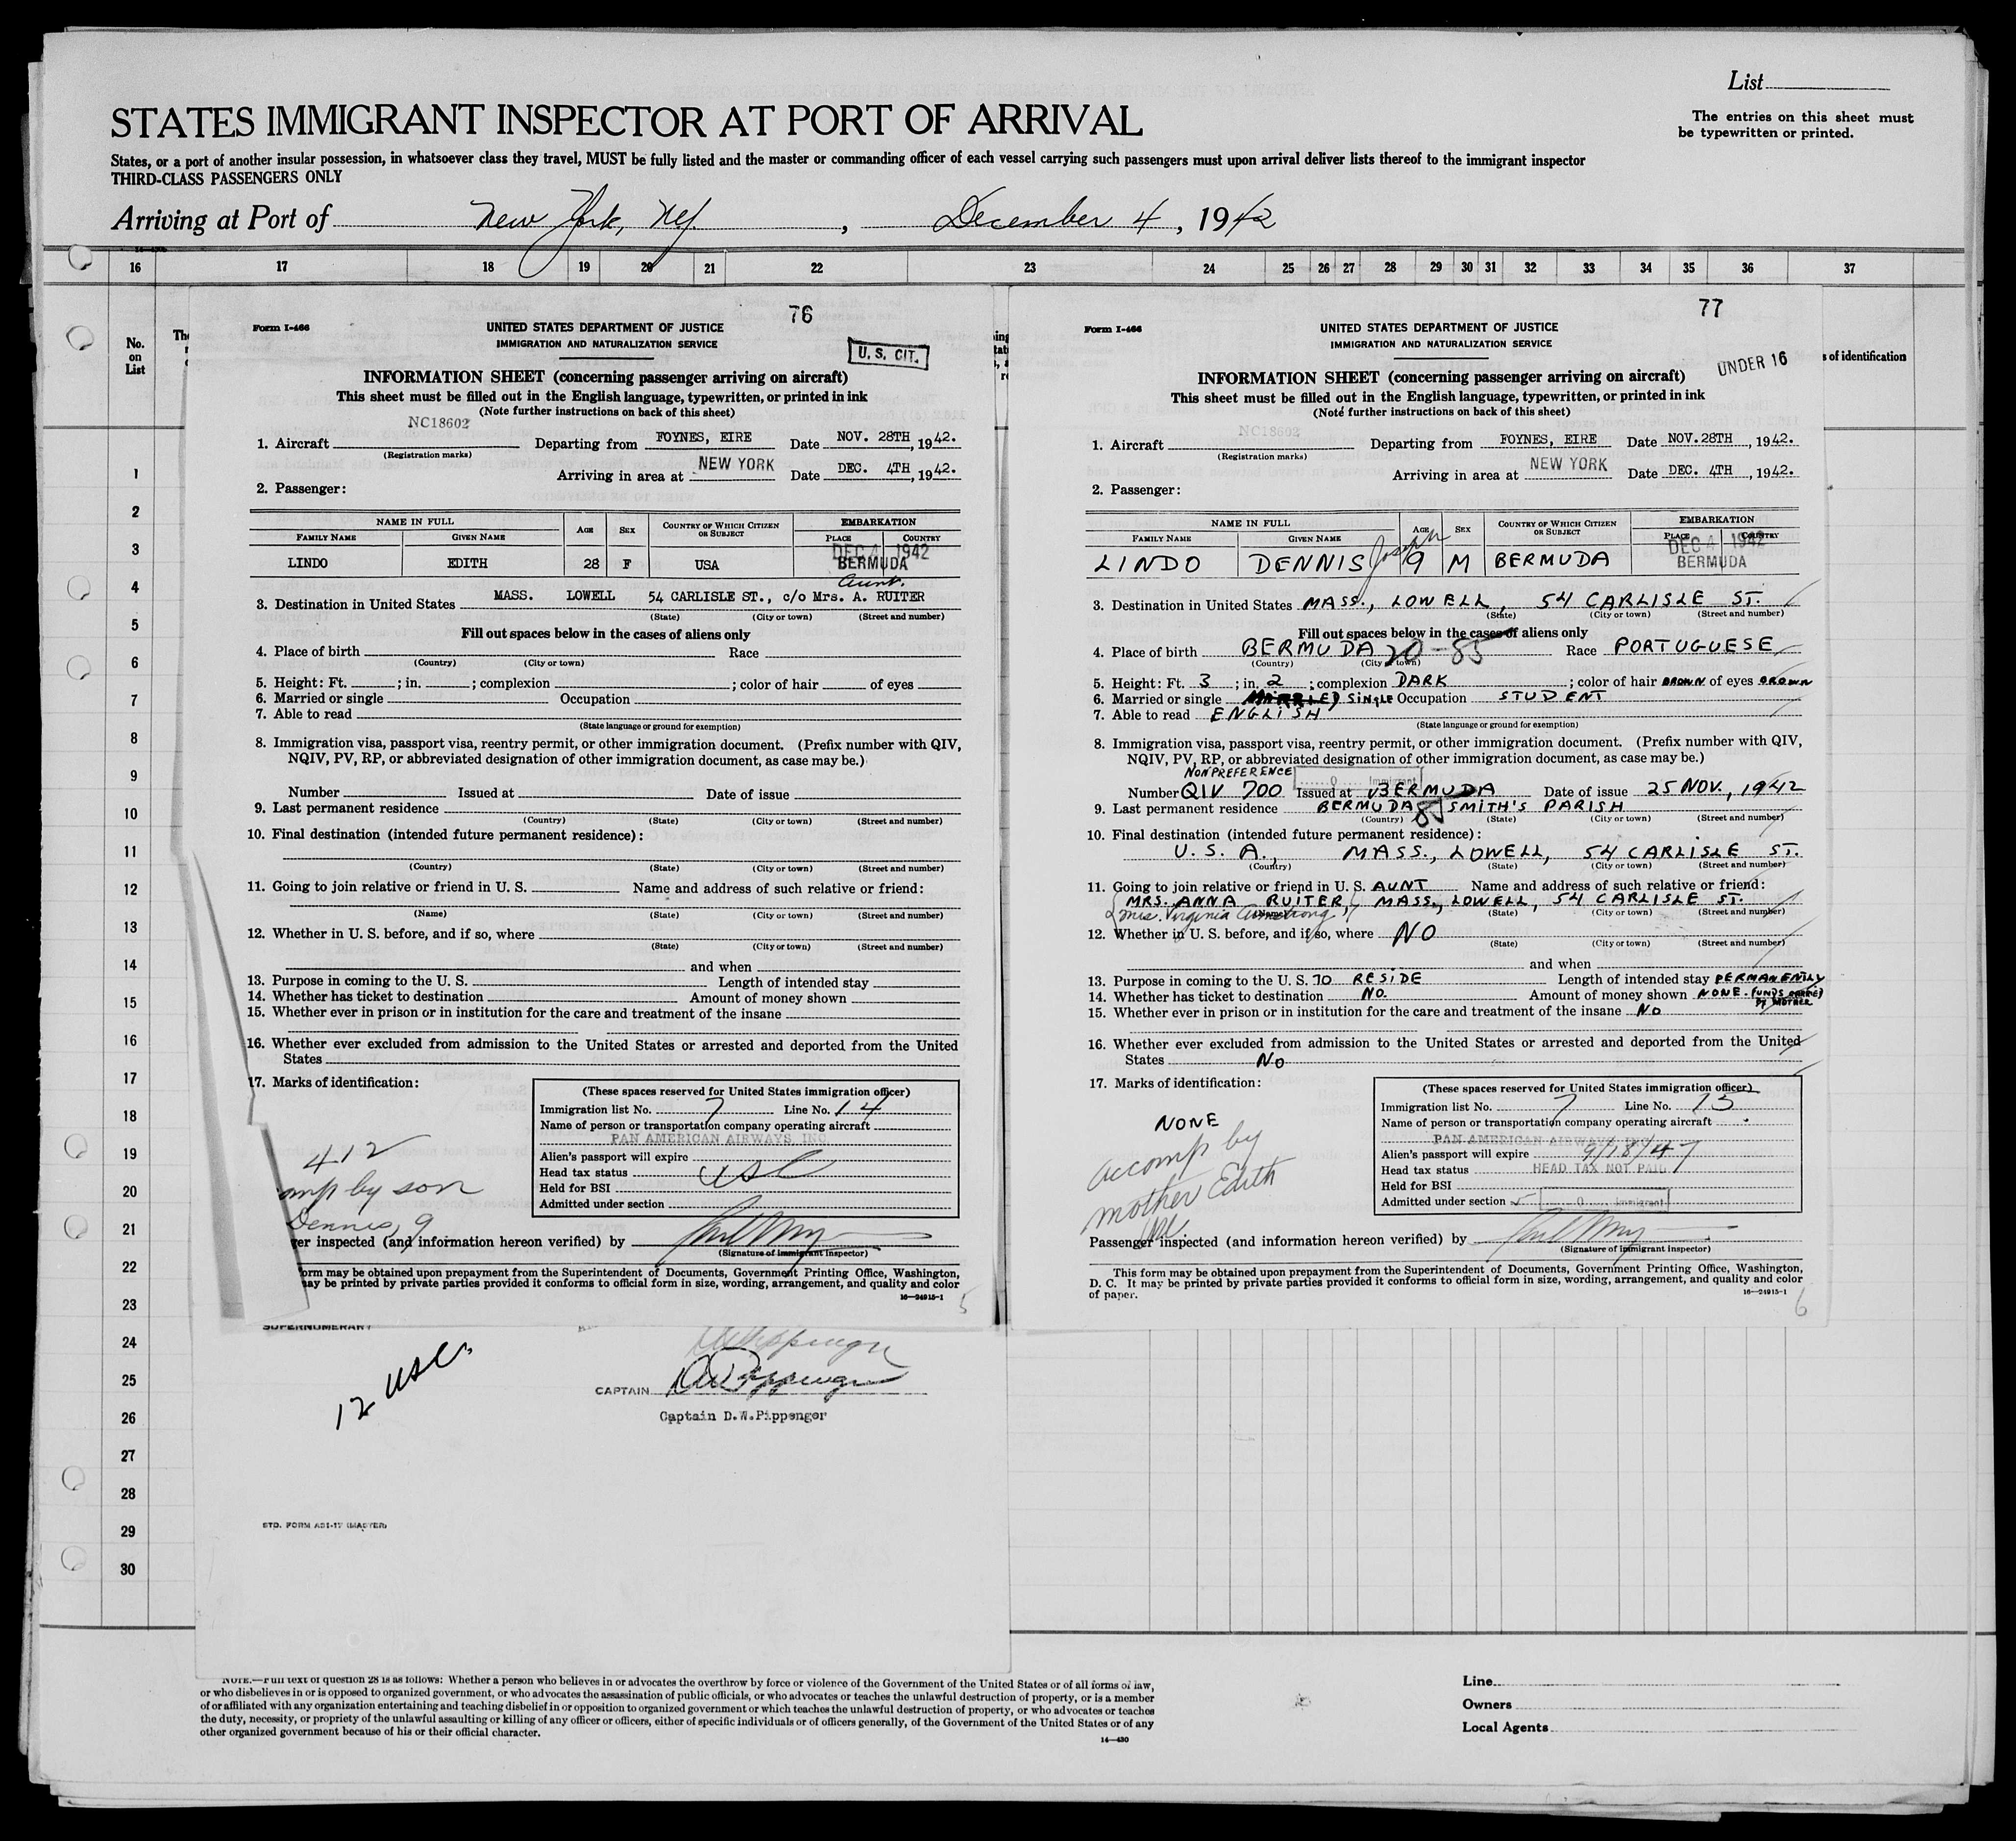 List
STATES IMMIGRANT INSPECTOR AT PORT OF ARRIVAL
The entries on this sheet must
be typewritten or printed.
States, or a port of another insular possession, in whatsoever class they travel, MUST be fully listed and the master or commanding officer of each vessel carrying such passengers must upon arrival deliver lists thereof to the immigrant inspector
THIRD-CLASS PASSENGERS ONLY
Arriving at Port of New York, NY. , December 4 , 1942
16 17 18 19 20 21 22 23 24 25 26 27 28 29 30 31 32 33 34 35 36 37
No.
on
List
1
2
3
4
5
6
7
8
9
10
11
12
13
14
15
16
17
18
19
20
21
22
23
24
25
26
27
28
29
30
76
Form I-466
UNITED STATES DEPARTMENT OF JUSTICE
IMMIGRATION AND NATURALIZATION SERVICE
U. S. CIT.
INFORMATION SHEET (concerning passenger arriving on aircraft)
This sheet must be filled out in the English language, typewritten, or printed in ink
(Note further instructions on back of this sheet)
NC18602
1. Aircraft Departing from FOYNES, EIRE Date NOV. 28TH , 1942.
(Registration marks)
Arriving in area at NEW YORK Date DEC. 4TH , 1942.
2. Passenger:
NAME IN FULL AGE SEX COUNTRY OF WHICH CITIZEN OR SUBJECT EMBARKATION
FAMILY NAME GIVEN NAME PLACE COUNTRY
DEC 4 1942
LINDO EDITH 28 F USA BERMUDA
Aunt.
3. Destination in United States MASS. LOWELL 54 CARLISLE ST., c/o Mrs. A. RUITER
(State) (City or town) (Street and number)
Fill out spaces below in the cases of aliens only
4. Place of birth Race
(Country) (City or town)
5. Height: Ft. ; in. ; complexion ; color of hair of eyes
6. Married or single Occupation
7. Able to read
(State language or ground for exemption)
8. Immigration visa, passport visa, reentry permit, or other immigration document. (Prefix number with QIV,
NQIV, PV, RP, or abbreviated designation of other immigration document, as case may be.)
Number Issued at Date of issue
9. Last permanent residence
(Country) (State) (City or town) (Street and number)
10. Final destination (intended future permanent residence):
(Country) (State) (City or town) (Street and number)
11. Going to join relative or friend in U. S. Name and address of such relative or friend:
(Name) (State) (City or town) (Street and number)
12. Whether in U. S. before, and if so, where
(State) (City or town) (Street and number)
and when
13. Purpose in coming to the U. S. Length of intended stay
14. Whether has ticket to destination Amount of money shown
15. Whether ever in prison or in institution for the care and treatment of the insane
16. Whether ever excluded from admission to the United States or arrested and deported from the United
States
17. Marks of identification:
(These spaces reserved for United States immigration officer)
Immigration list No. 7 Line No. 14
Name of person or transportation company operating aircraft
PAN AMERICAN AIRWAYS, INC.
Alien's passport will expire
Head tax status usc
Held for BSI
Admitted under section
412
omp by son
Dennis, 9
ger inspected (and information hereon verified) by
(Signature of immigrant inspector)
form may be obtained upon prepayment from the Superintendent of Documents, Government Printing Office, Washington,
may be printed by private parties provided it conforms to official form in size, wording, arrangement, and quality and color
16—24915-1
5
SUPERNUMERARY
12 usc.
CAPTAIN D W Pippenger
Captain D.W.Pippenger
STD. FORM ASI-17 (MASTER)
77
Form I-466
UNITED STATES DEPARTMENT OF JUSTICE
IMMIGRATION AND NATURALIZATION SERVICE
UNDER 16
s of identification
INFORMATION SHEET (concerning passenger arriving on aircraft)
This sheet must be filled out in the English language, typewritten, or printed in ink
(Note further instructions on back of this sheet)
NC18602
1. Aircraft Departing from FOYNES, EIRE Date NOV.28TH , 1942.
(Registration marks)
Arriving in area at NEW YORK Date DEC. 4TH , 1942.
2. Passenger:
NAME IN FULL AGE SEX COUNTRY OF WHICH CITIZEN OR SUBJECT EMBARKATION
FAMILY NAME GIVEN NAME PLACE COUNTRY
DEC 4 1942
LINDO DENNIS Joseph 9 M BERMUDA BERMUDA
3. Destination in United States MASS., LOWELL, 54 CARLISLE ST.
(State) (City or town) (Street and number)
Fill out spaces below in the cases of aliens only
4. Place of birth BERMUDA 20-85 Race PORTUGUESE
(Country) (City or town)
5. Height: Ft. 3 ; in. 2 ; complexion DARK ; color of hair BROWN of eyes BROWN
6. Married or single MARRIED SINGLE Occupation STUDENT
7. Able to read ENGLISH
(State language or ground for exemption)
8. Immigration visa, passport visa, reentry permit, or other immigration document. (Prefix number with QIV,
NQIV, PV, RP, or abbreviated designation of other immigration document, as case may be.)
NONPREFERENCE O Immigrant
Number QIV 700 Issued at BERMUDA Date of issue 25 NOV., 1942
9. Last permanent residence BERMUDA 85 SMITH'S PARISH
(Country) (State) (City or town) (Street and number)
10. Final destination (intended future permanent residence):
U. S. A., MASS., LOWELL, 54 CARLISLE ST.
(Country) (State) (City or town) (Street and number)
11. Going to join relative or friend in U. S. AUNT Name and address of such relative or friend:
MRS. ANNA RUITER, MASS., LOWELL, 54 CARLISLE ST.
Mrs. Virginia Armstrong (State) (City or town) (Street and number)
12. Whether in U. S. before, and if so, where NO
(State) (City or town) (Street and number)
and when
13. Purpose in coming to the U. S. TO RESIDE Length of intended stay PERMANENTLY
14. Whether has ticket to destination NO. Amount of money shown NONE. FUNDS CARRIED
BY MOTHER
15. Whether ever in prison or in institution for the care and treatment of the insane NO
16. Whether ever excluded from admission to the United States or arrested and deported from the United
States NO
17. Marks of identification:
NONE
accomp by
mother Edith
usc.
(These spaces reserved for United States immigration officer)
Immigration list No. 7 Line No. 15
Name of person or transportation company operating aircraft
PAN AMERICAN AIRWAYS, INC.
Alien's passport will expire 9/18/47
Head tax status HEAD TAX NOT PAID
Held for BSI
Admitted under section 5 O Immigrant
Passenger inspected (and information hereon verified) by
(Signature of immigrant inspector)
This form may be obtained upon prepayment from the Superintendent of Documents, Government Printing Office, Washington,
D. C. It may be printed by private parties provided it conforms to official form in size, wording, arrangement, and quality and color
of paper.
16—24915-1
6
NOTE.—Full text of question 28 is as follows: Whether a person who believes in or advocates the overthrow by force or violence of the Government of the United States or of all forms of law,
or who disbelieves in or is opposed to organized government, or who advocates the assassination of public officials, or who advocates or teaches the unlawful destruction of property, or is a member
of or affiliated with any organization entertaining and teaching disbelief in or opposition to organized government or which teaches the unlawful destruction of property, or who advocates or teaches
the duty, necessity, or propriety of the unlawful assaulting or killing of any officer or officers, either of specific individuals or of officers generally, of the Government of the United States or of any
other organized government because of his or their official character.
14—430
Line
Owners
Local Agents